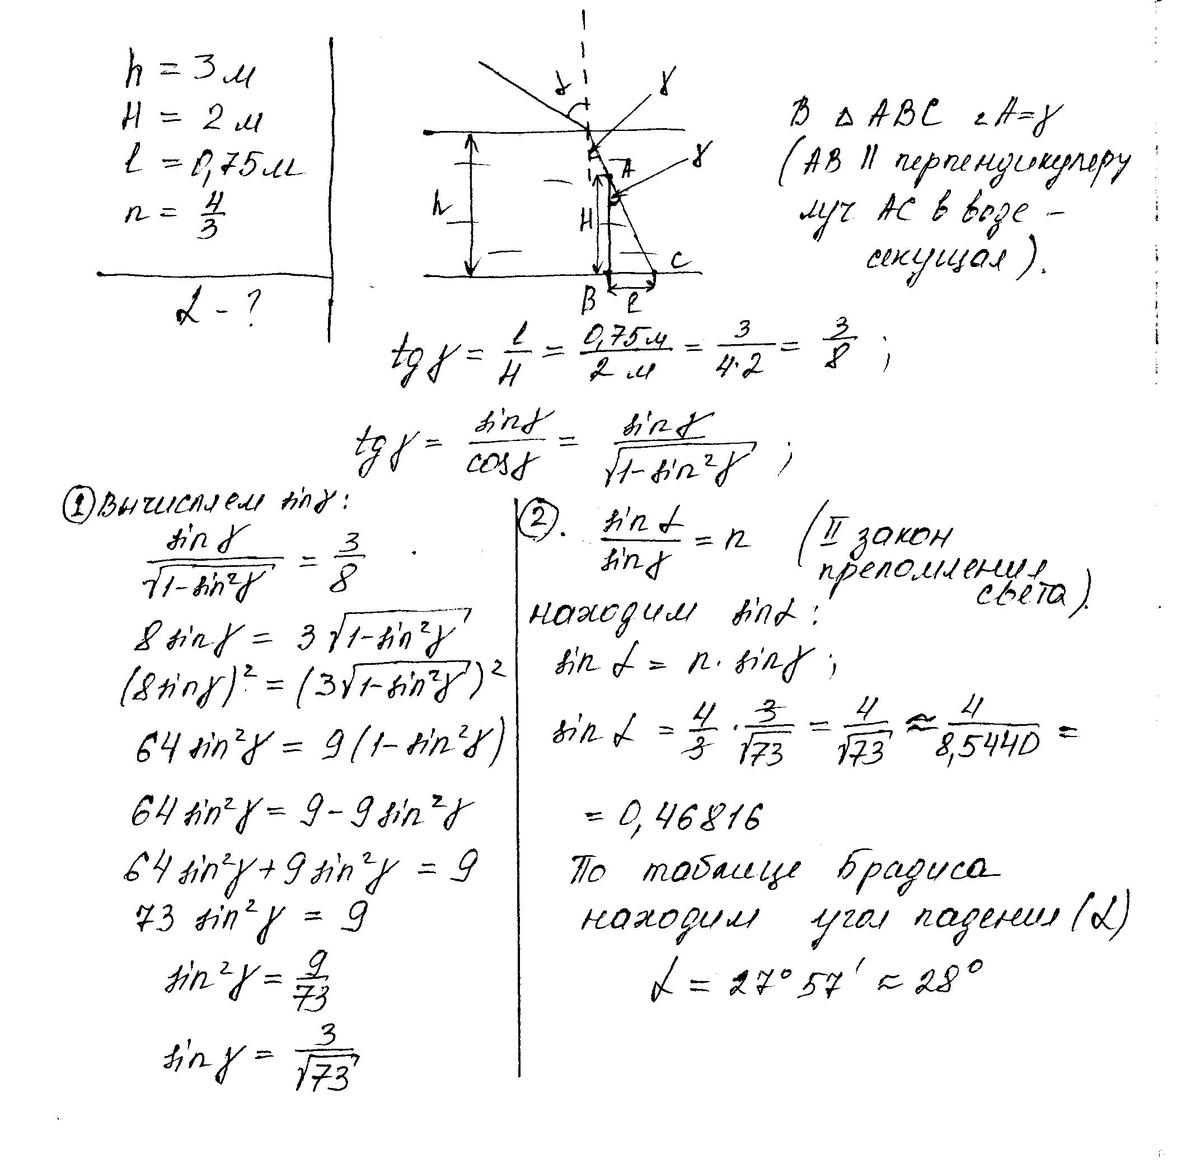 h = 3 м
H = 2 м
l = 0,75 м
n = 4/3
α - ?
α
γ
γ
A
h
H
B
l
C
В Δ ABC ∠A=γ
(AB || перпендикуляру
луч AC в воде –
секущая).
tg γ = l/H = 0,75 м/2 м = 3/4·2 = 3/8 ;
tg γ = sin γ/cos γ = sin γ/√1-sin²γ ;
① Вычисляем sin γ:
sin γ/√1-sin²γ = 3/8
8 sin γ = 3√1-sin²γ
(8 sin γ)² = (3√1-sin²γ)²
64 sin²γ = 9(1-sin²γ)
64 sin²γ = 9 - 9 sin²γ
64 sin²γ + 9 sin²γ = 9
73 sin²γ = 9
sin²γ = 9/73
sin γ = 3/√73
②. sin α/sin γ = n (II закон
преломления
света).
находим sin α:
sin α = n · sin γ ;
sin α = 4/3 · 3/√73 = 4/√73 ≈ 4/8,5440 =
= 0,46816
По таблице Брадиса
находим угол падения (α)
α = 27° 57′ ≈ 28°